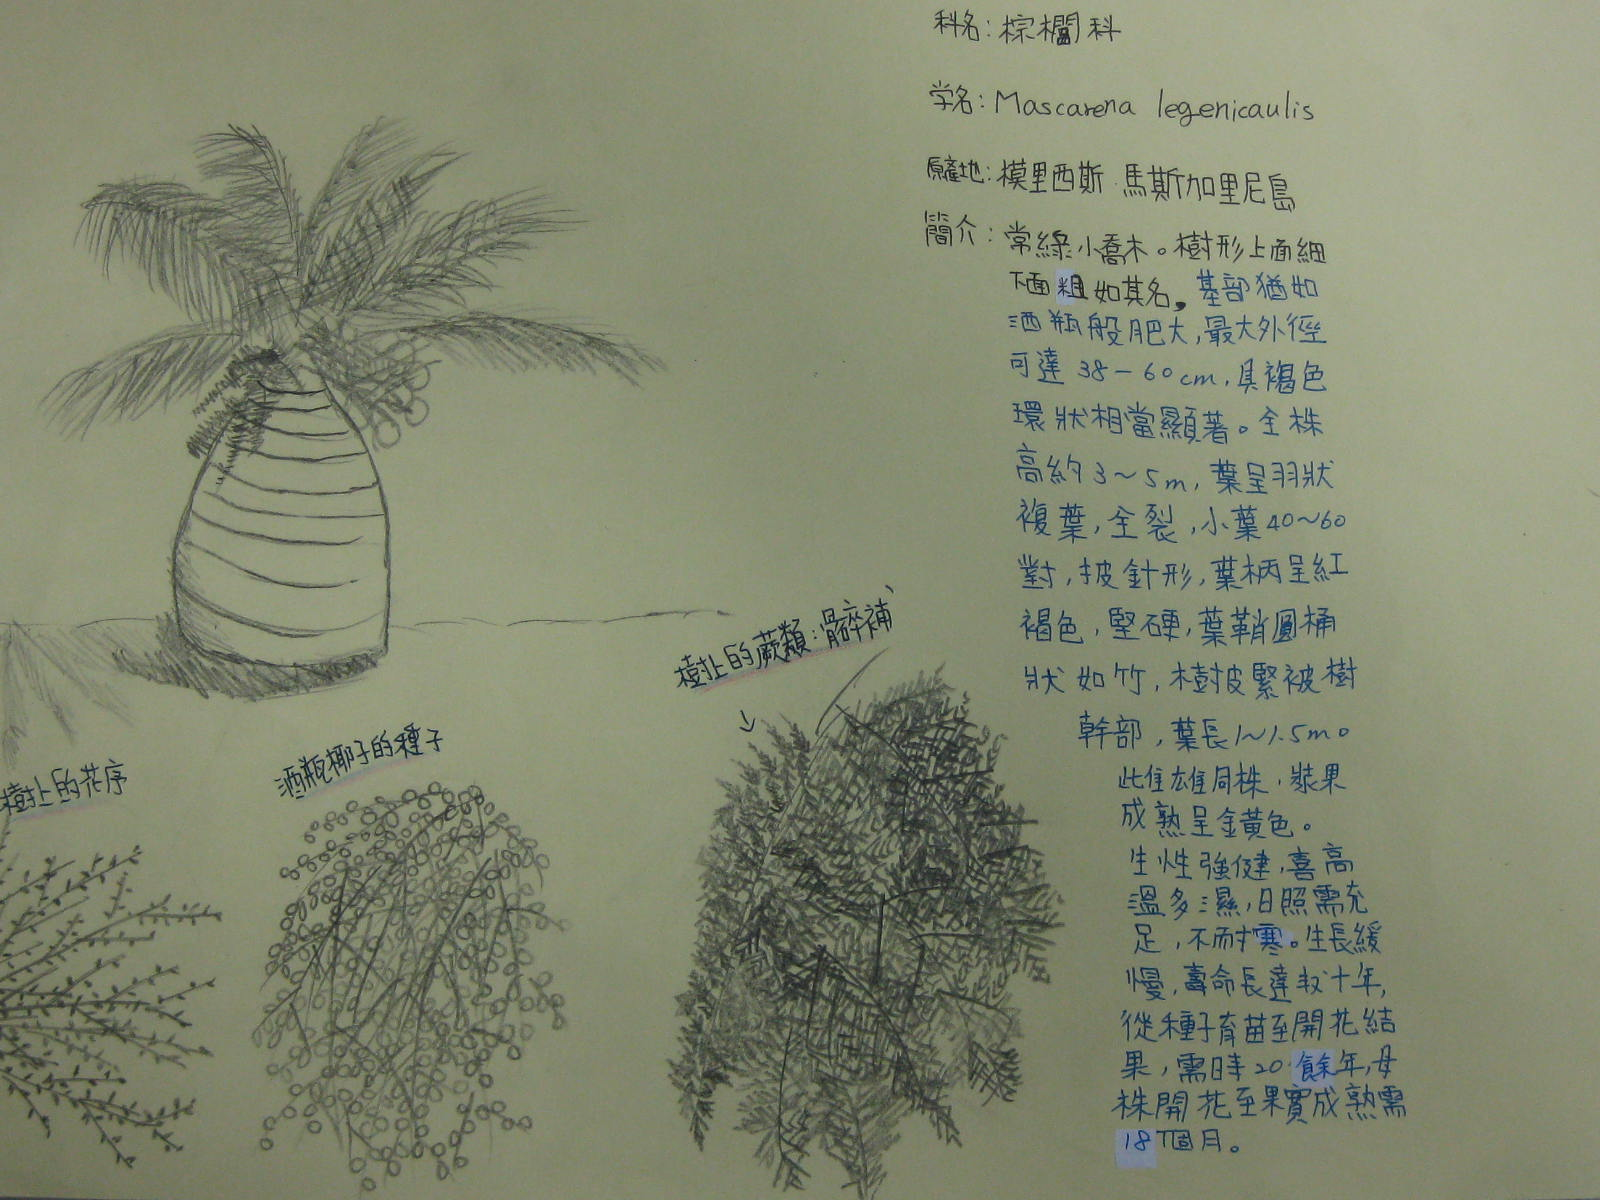 科名:棕櫚科
学名:Mascarena legenicaulis
原產地:模里西斯 馬斯加里尼島
簡介:常綠小喬木。樹形上面細
下面粗如其名。基部猶如
酒瓶般肥大,最大外徑
可達38-60cm,具褐色
環狀相當顯著。全株
高約3~5m,葉呈羽狀
複葉,全裂,小葉40~60
對,披針形,葉柄呈紅
褐色,堅硬,葉鞘圓桶
狀如竹,樹皮緊被樹
幹部,葉長1~1.5m。
雌雄同株,漿果
成熟呈金黃色。
生性強健,喜高
溫多濕,日照需充
足,不耐寒。生長緩
慢,壽命長達數十年,
從種子育苗至開花結
果,需時20餘年,母
株開花至果實成熟需
18個月。
樹上的蕨類:骨碎補
酒瓶椰子的種子
樹上的花序